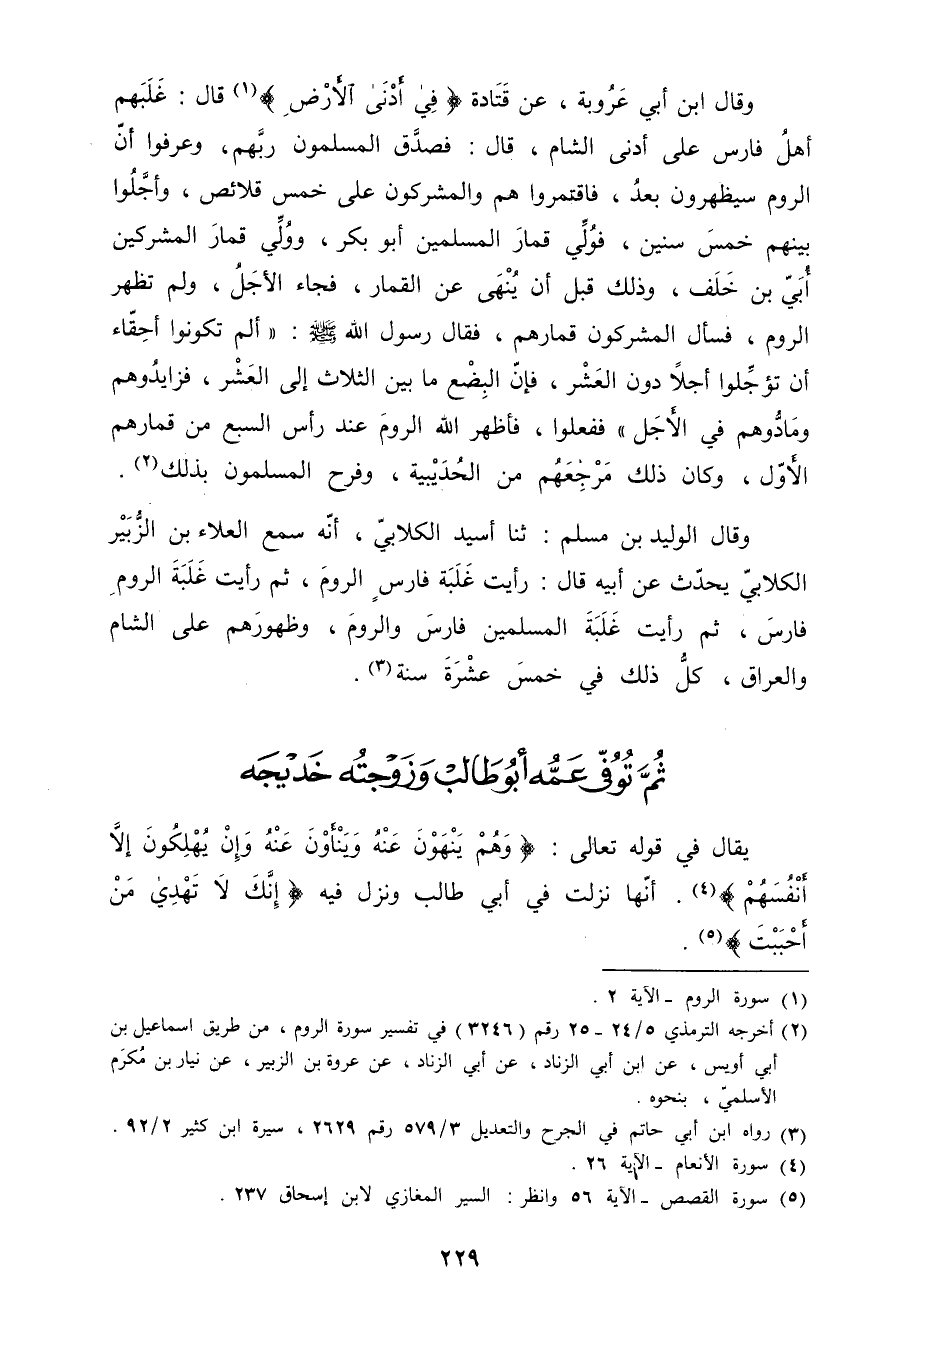 وقال ابن أبي عَرُوبة ، عن قَتَادة ﴿ فِيٓ أَدْنَىٰ ٱلْأَرْضِ ﴾(١) قال : غَلَبَهم
أهلُ فارس على أدنى الشام ، قال : فصدَّق المسلمون ربَّهم، وعرفوا أنّ
الروم سيظهرون بعدُ ، فاقتمروا هم والمشركون على خمس قلائص ، وأجَّلُوا
بينهم خمسَ سنين ، فوُلِّي قمارَ المسلمين أبو بكر ، ووُلِّي قمارَ المشركين
أُبَيّ بن خَلَف ، وذلك قبل أن يُنْهَى عن القمار ، فجاء الأجَلُ ، ولم تظهر
الروم ، فسأل المشركون قمارهم ، فقال رسول الله ﷺ : « ألم تكونوا أحِقّاء
أن تؤجِّلوا أجلاً دون العَشْر ، فإنّ البِضْع ما بين الثلاث إلى العَشْر ، فزايدُوهم
ومَادُّوهم في الأَجَل » ففعلوا ، فأظهر الله الرومَ عند رأس السبع من قمارهم
الأَوّل ، وكان ذلك مَرْجِعَهُم من الحُدَيْبية ، وفرح المسلمون بذلك(٢) .
وقال الوليد بن مسلم : ثنا أسيد الكلابيّ ، أنّه سمع العلاء بن الزُّبَيْر
الكلابيّ يحدّث عن أبيه قال : رأيت غَلَبَة فارسٍ الرومَ ، ثم رأيت غَلَبَةَ الرومِ
فارسَ ، ثم رأيت غَلَبَةَ المسلمين فارسَ والرومَ ، وظهورَهم على الشام
والعراق ، كلُّ ذلك في خمسَ عشْرَةَ سنة(٣) .
ثُمَّ تُوُفّيَ عَمُّه أبُو طَالب وَزَوْجتُه خَديجَه
يقال في قوله تعالى : ﴿ وَهُمْ يَنْهَوْنَ عَنْهُ وَيَنْأَوْنَ عَنْهُ وَإِنْ يُهْلِكُونَ إلاَّ
أَنْفُسَهُمْ ﴾(٤) . أنّها نزلت في أبي طالب ونزل فيه ﴿ إِنَّكَ لَا تَهْدِيْ مَنْ
أَحْبَبْتَ ﴾(٥) .
(١) سورة الروم ـ الآية ٢ .
(٢) أخرجه الترمذي ٢٤/٥ ـ ٢٥ رقم (٣٢٤٦) في تفسير سورة الروم ، من طريق اسماعيل بن
أبي أويس ، عن ابن أبي الزناد ، عن أبي الزناد ، عن عروة بن الزبير ، عن نيار بن مُكرَم
الأسلميّ ، بنحوه .
(٣) رواه ابن أبي حاتم في الجرح والتعديل ٥٧٩/٣ رقم ٢٦٢٩ ، سيرة ابن كثير ٩٢/٢ .
(٤) سورة الأنعام ـ الآية ٢٦ .
(٥) سورة القصص ـ الآية ٥٦ وانظر : السير المغازي لابن إسحاق ٢٣٧ .
٢٢٩